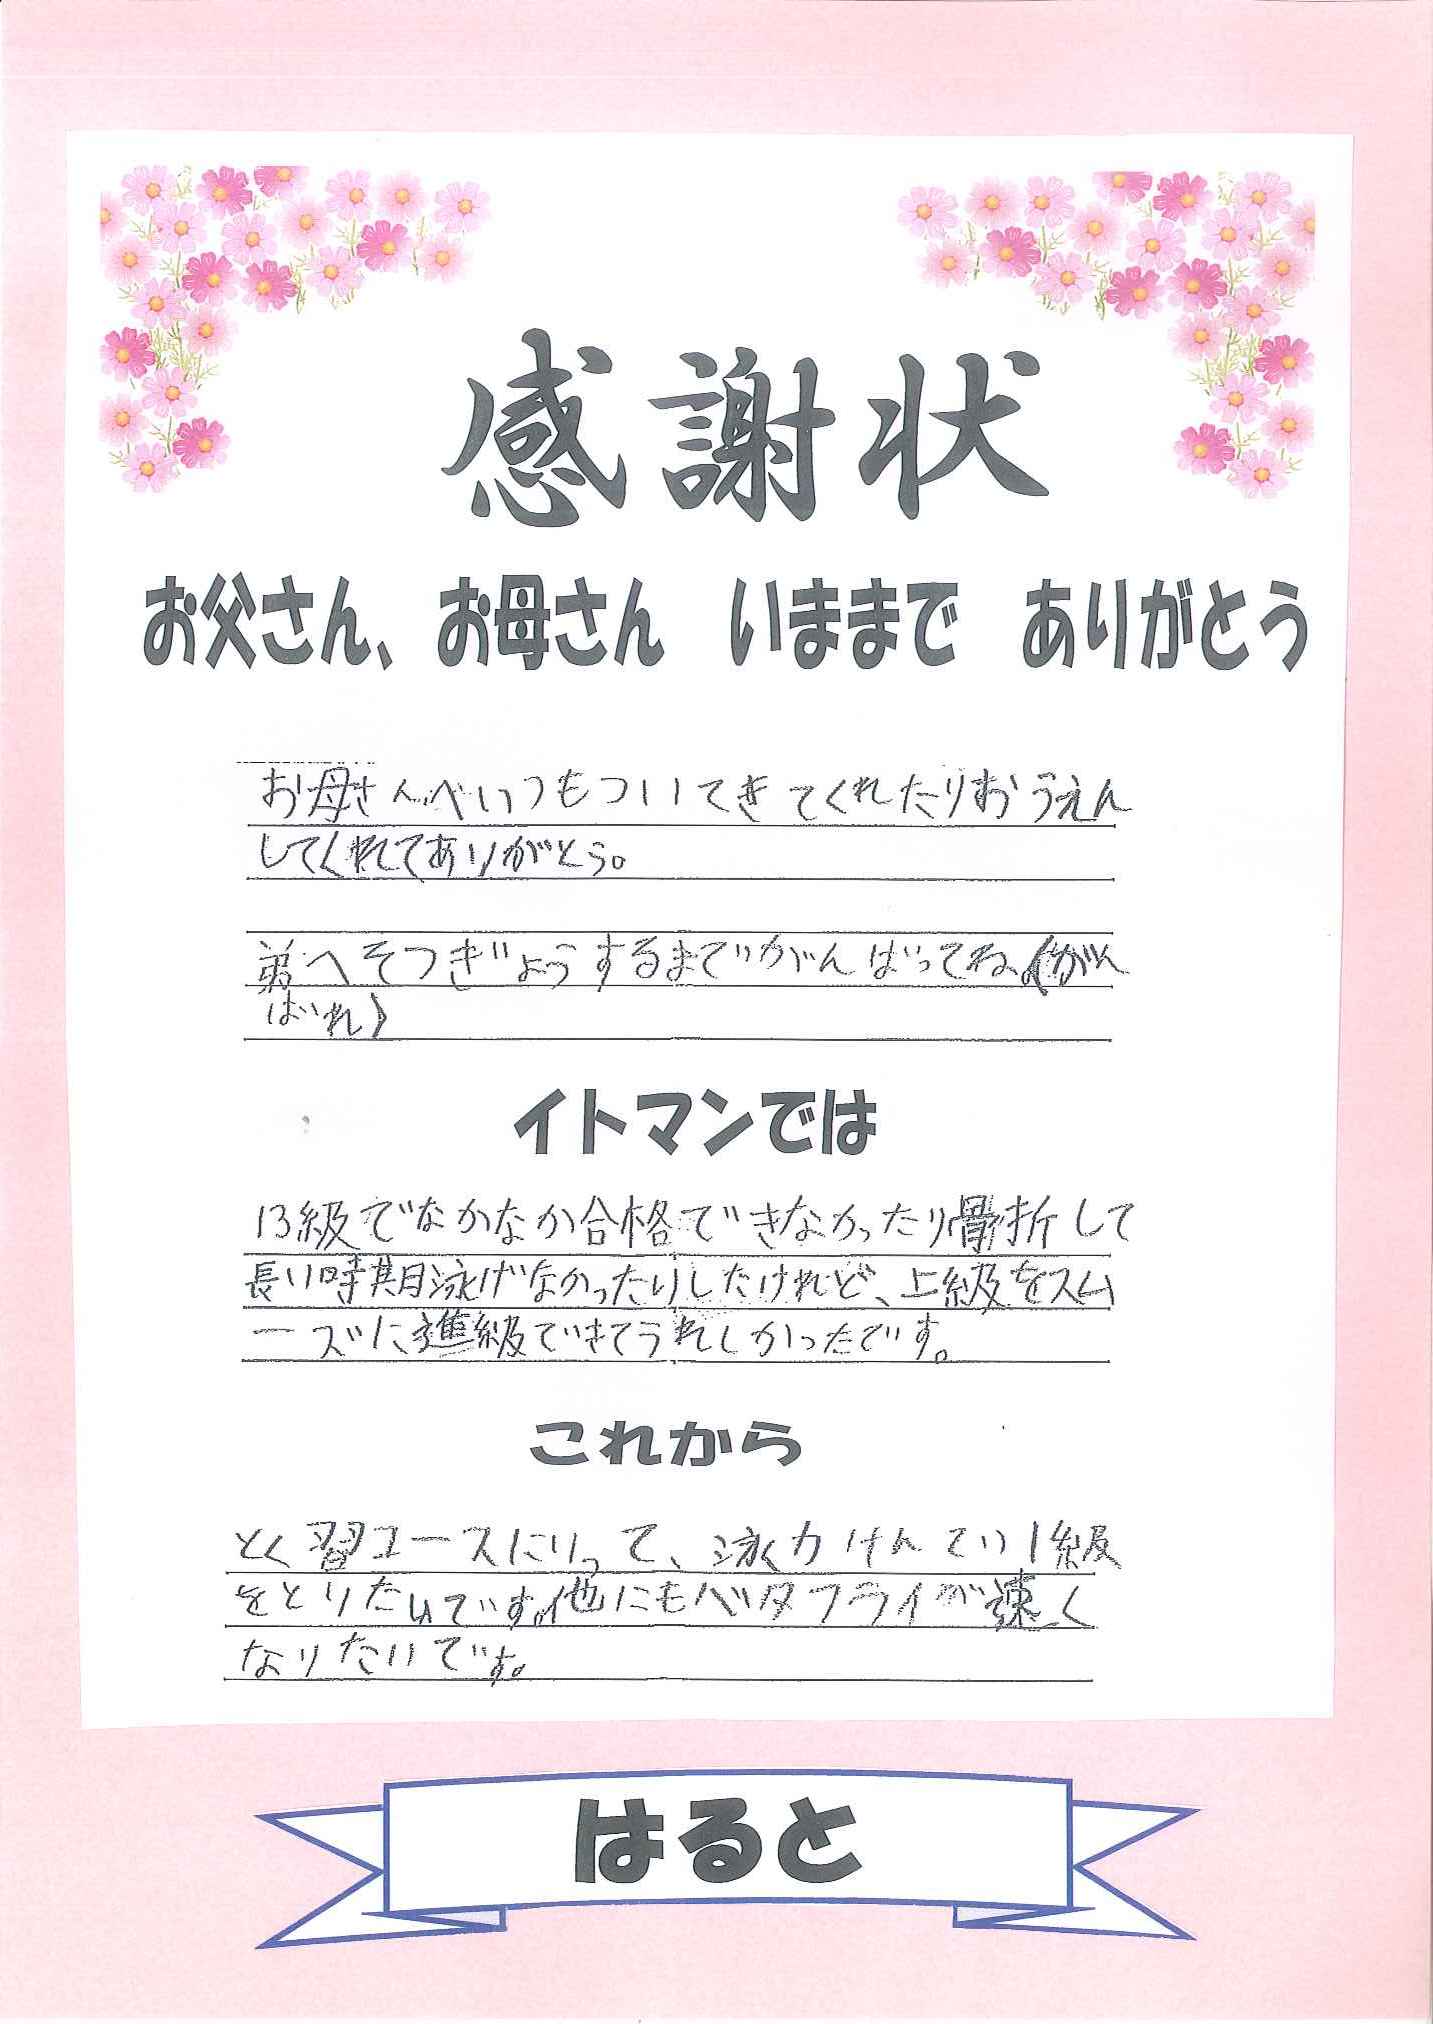 感謝状
お父さん、お母さん　いままで　ありがとう
お母さんへいつもついてきてくれたりおうえん
してくれてありがとう。
弟へそつぎょうするまでがんばってね、(がん
ばれ)
イトマンでは
13級でなかなか合格できなかったり骨折して
長い時期泳げなかったりしたけれど、上級をスム
ーズに進級できてうれしかったです。
これから
とく習コースに入って、泳力けんてい1級
をとりたいです。他にもバタフライが速く
なりたいです。
はると